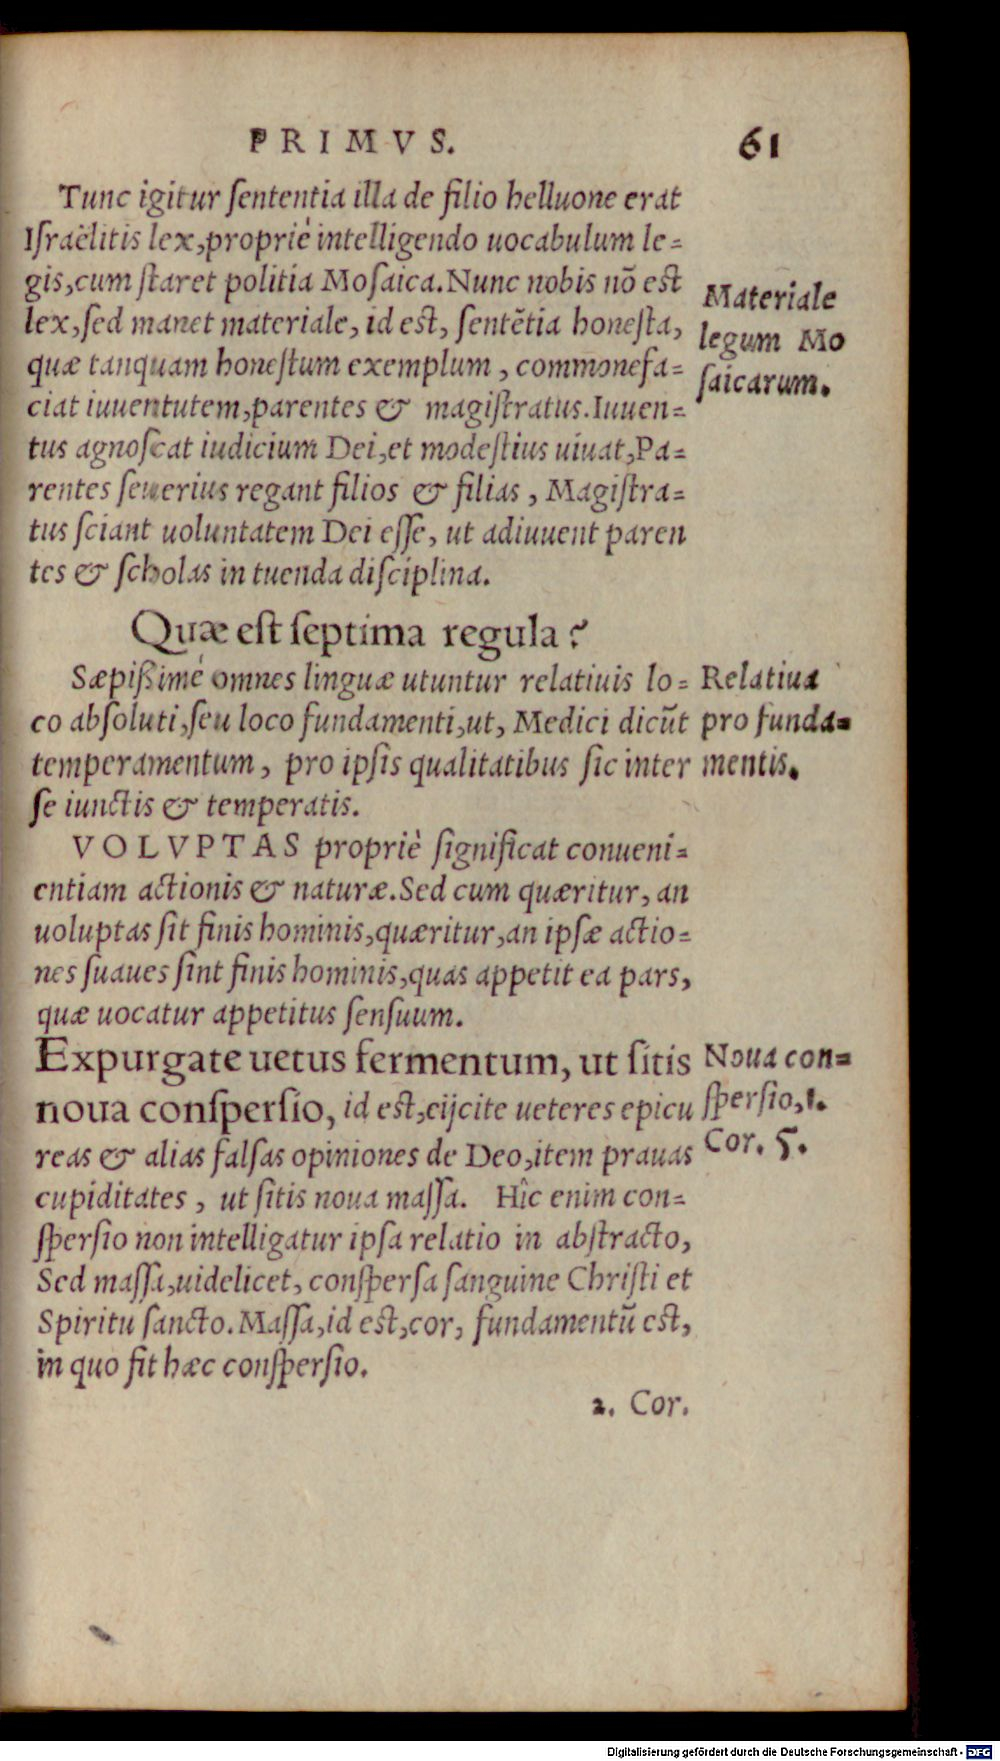 PRIMVS. 61
Tunc igitur ſententia illa de filio helluone erat
Iſraëlitis lex, propriè intelligendo uocabulum le=
gis, cum ſtaret politia Moſaica. Nunc nobis nõ eſt
lex, ſed manet materiale, id eſt, ſentẽtia honeſta,
quæ tanquam honeſtum exemplum, commonefa=
ciat iuuentutem, parentes & magiſtratus. Iuuen=
tus agnoſcat iudicium Dei, et modeſtius uiuat, Pa=
rentes ſeuerius regant filios & filias, Magiſtra=
tus ſciant uoluntatem Dei eſſe, ut adiuuent paren
tes & ſcholas in tuenda diſciplina.
Materiale
legum Mo
ſaicarum.
Quæ eſt ſeptima regula?
Sæpißimè omnes linguæ utuntur relatiuis lo=
co abſoluti, ſeu loco fundamenti, ut, Medici dicũt
temperamentum, pro ipſis qualitatibus ſic inter
ſe iunctis & temperatis.
Relatiua
pro funda=
mentis.
VOLVPTAS propriè ſignificat conueni=
entiam actionis & naturæ. Sed cum quæritur, an
uoluptas ſit finis hominis, quæritur, an ipſæ actio=
nes ſuaues ſint finis hominis, quas appetit ea pars,
quæ uocatur appetitus ſenſuum.
Expurgate uetus fermentum, ut ſitis
noua conſperſio, id eſt, eijcite ueteres epicu
reas & alias falſas opiniones de Deo, item prauas
cupiditates, ut ſitis noua maſſa. Hîc enim con=
ſperſio non intelligatur ipſa relatio in abſtracto,
Sed maſſa, uidelicet, conſperſa ſanguine Chriſti et
Spiritu ſancto. Maſſa, id eſt, cor, fundamentũ eſt,
in quo fit hæc conſperſio.
Noua con=
ſperſio, 1.
Cor. 5.
2. Cor.
Digitalisierung gefördert durch die Deutsche Forschungsgemeinschaft - DFG